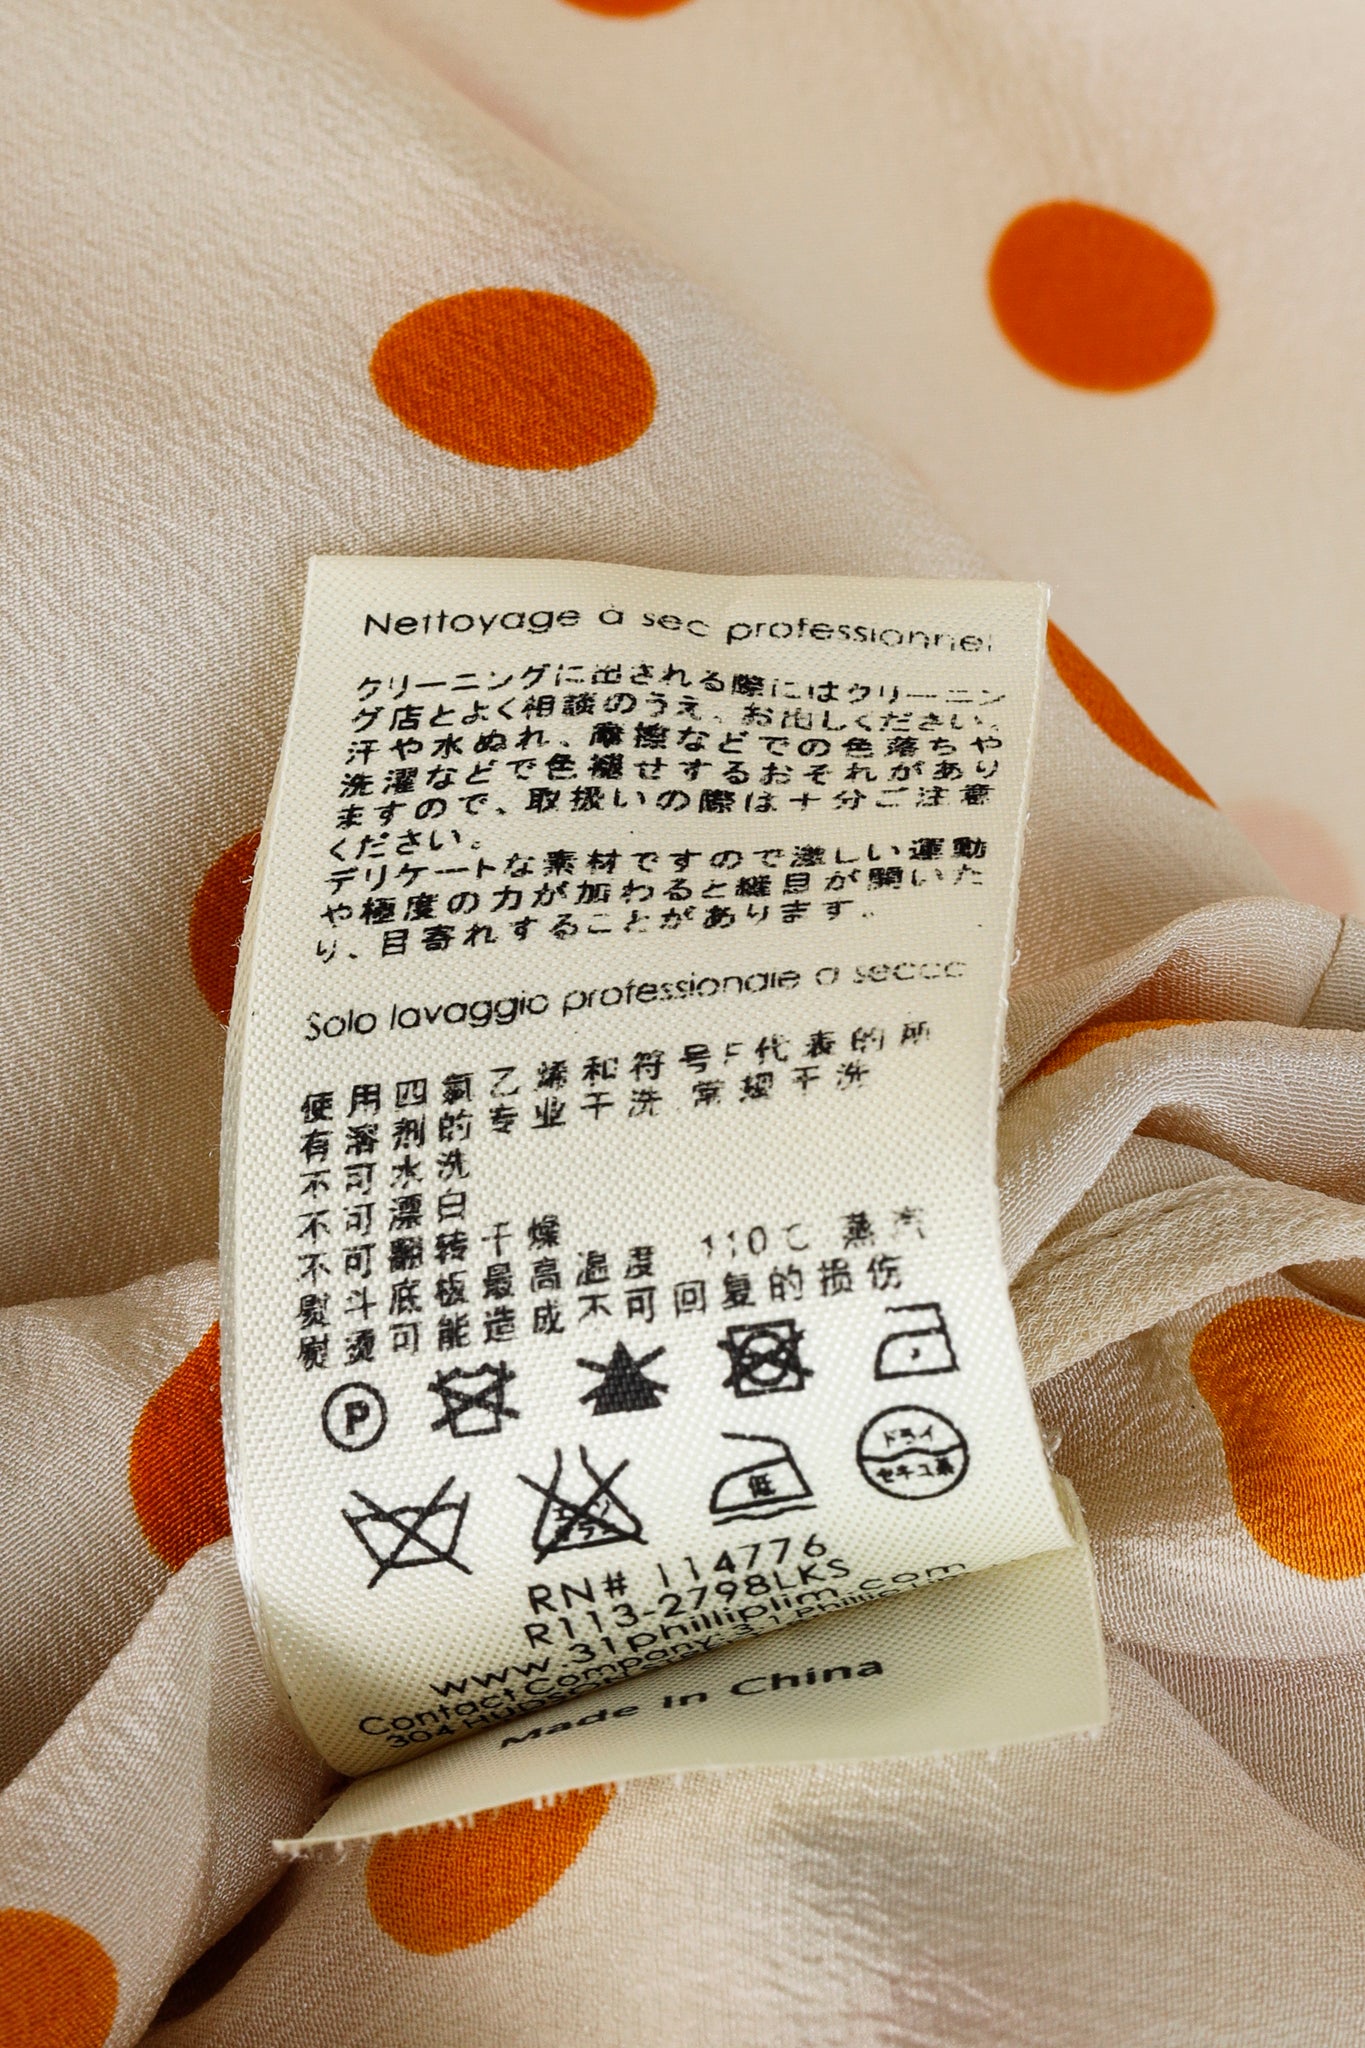 Nettoyage à sec professionnel
クリーニングに出される際にはクリーニン
グ店とよく相談のうえ、お出しください。
汗や水ぬれ、摩擦などでの色落ちや
洗濯などで色褪せするおそれがあり
ますので、取扱いの際は十分ご注意
ください。
デリケートな素材ですので激しい運動
や極度の力が加わると縫目が開いた
り、目寄れすることがあります。
Solo lavaggio professionale a secco
使用四氯乙烯和符号F代表的所
有溶剂的专业干洗.常规干洗
不可水洗
不可漂白
不可翻转干燥
熨斗底板最高温度 110C 蒸汽
熨烫可能造成不可回复的损伤
P
ドライ
セキユ系
エンソ
サラシ
低
RN# 114776
R113-2798LKS
www.31philliplim.com
Contact Company: 3.1 Phillip Lim
304 Hudson
Made In China